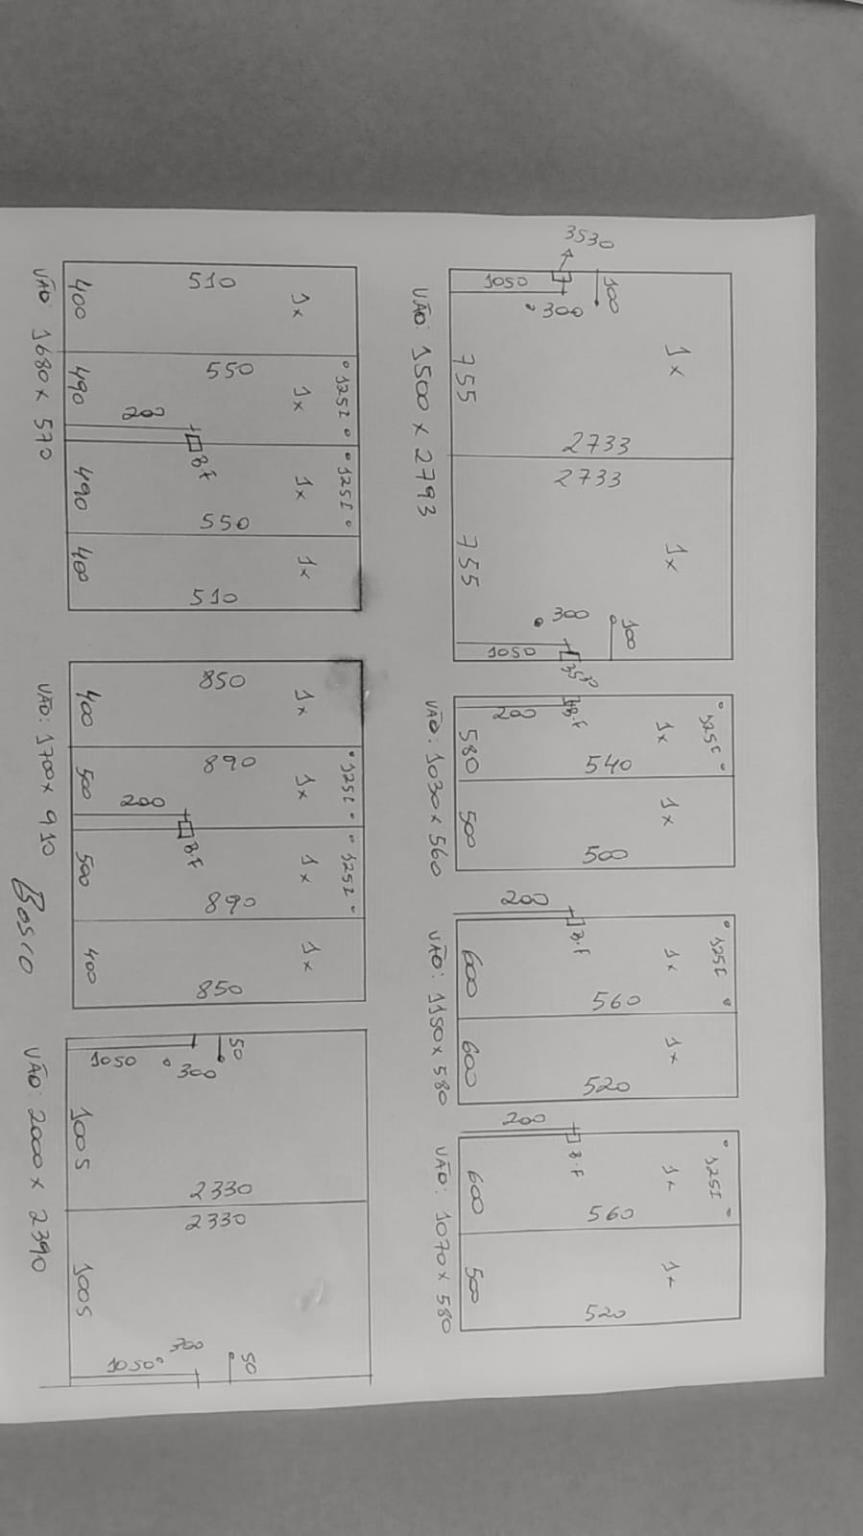 1x
1x
2733
2733
100
100
300
300
3530
3530
1050
1050
755
755
VÃO: 1500 x 2793
125I
1x
1x
540
500
B.F
200
580
500
VÃO: 1030 x 560
125I
1x
1x
560
520
B.F
200
600
600
VÃO: 1150 x 580
125I
1x
1x
560
520
B.F
200
600
500
VÃO: 1070 x 580
125I
125I
1x
1x
1x
1x
510
550
550
510
B.F
200
400
490
490
400
VÃO: 1680 x 570
125I
125I
1x
1x
1x
1x
850
890
890
850
B.F
200
400
500
500
400
VÃO: 1700 x 910
50
50
2330
2330
300
300
1050
1050
1005
1005
VÃO: 2000 x 2390
Bosco